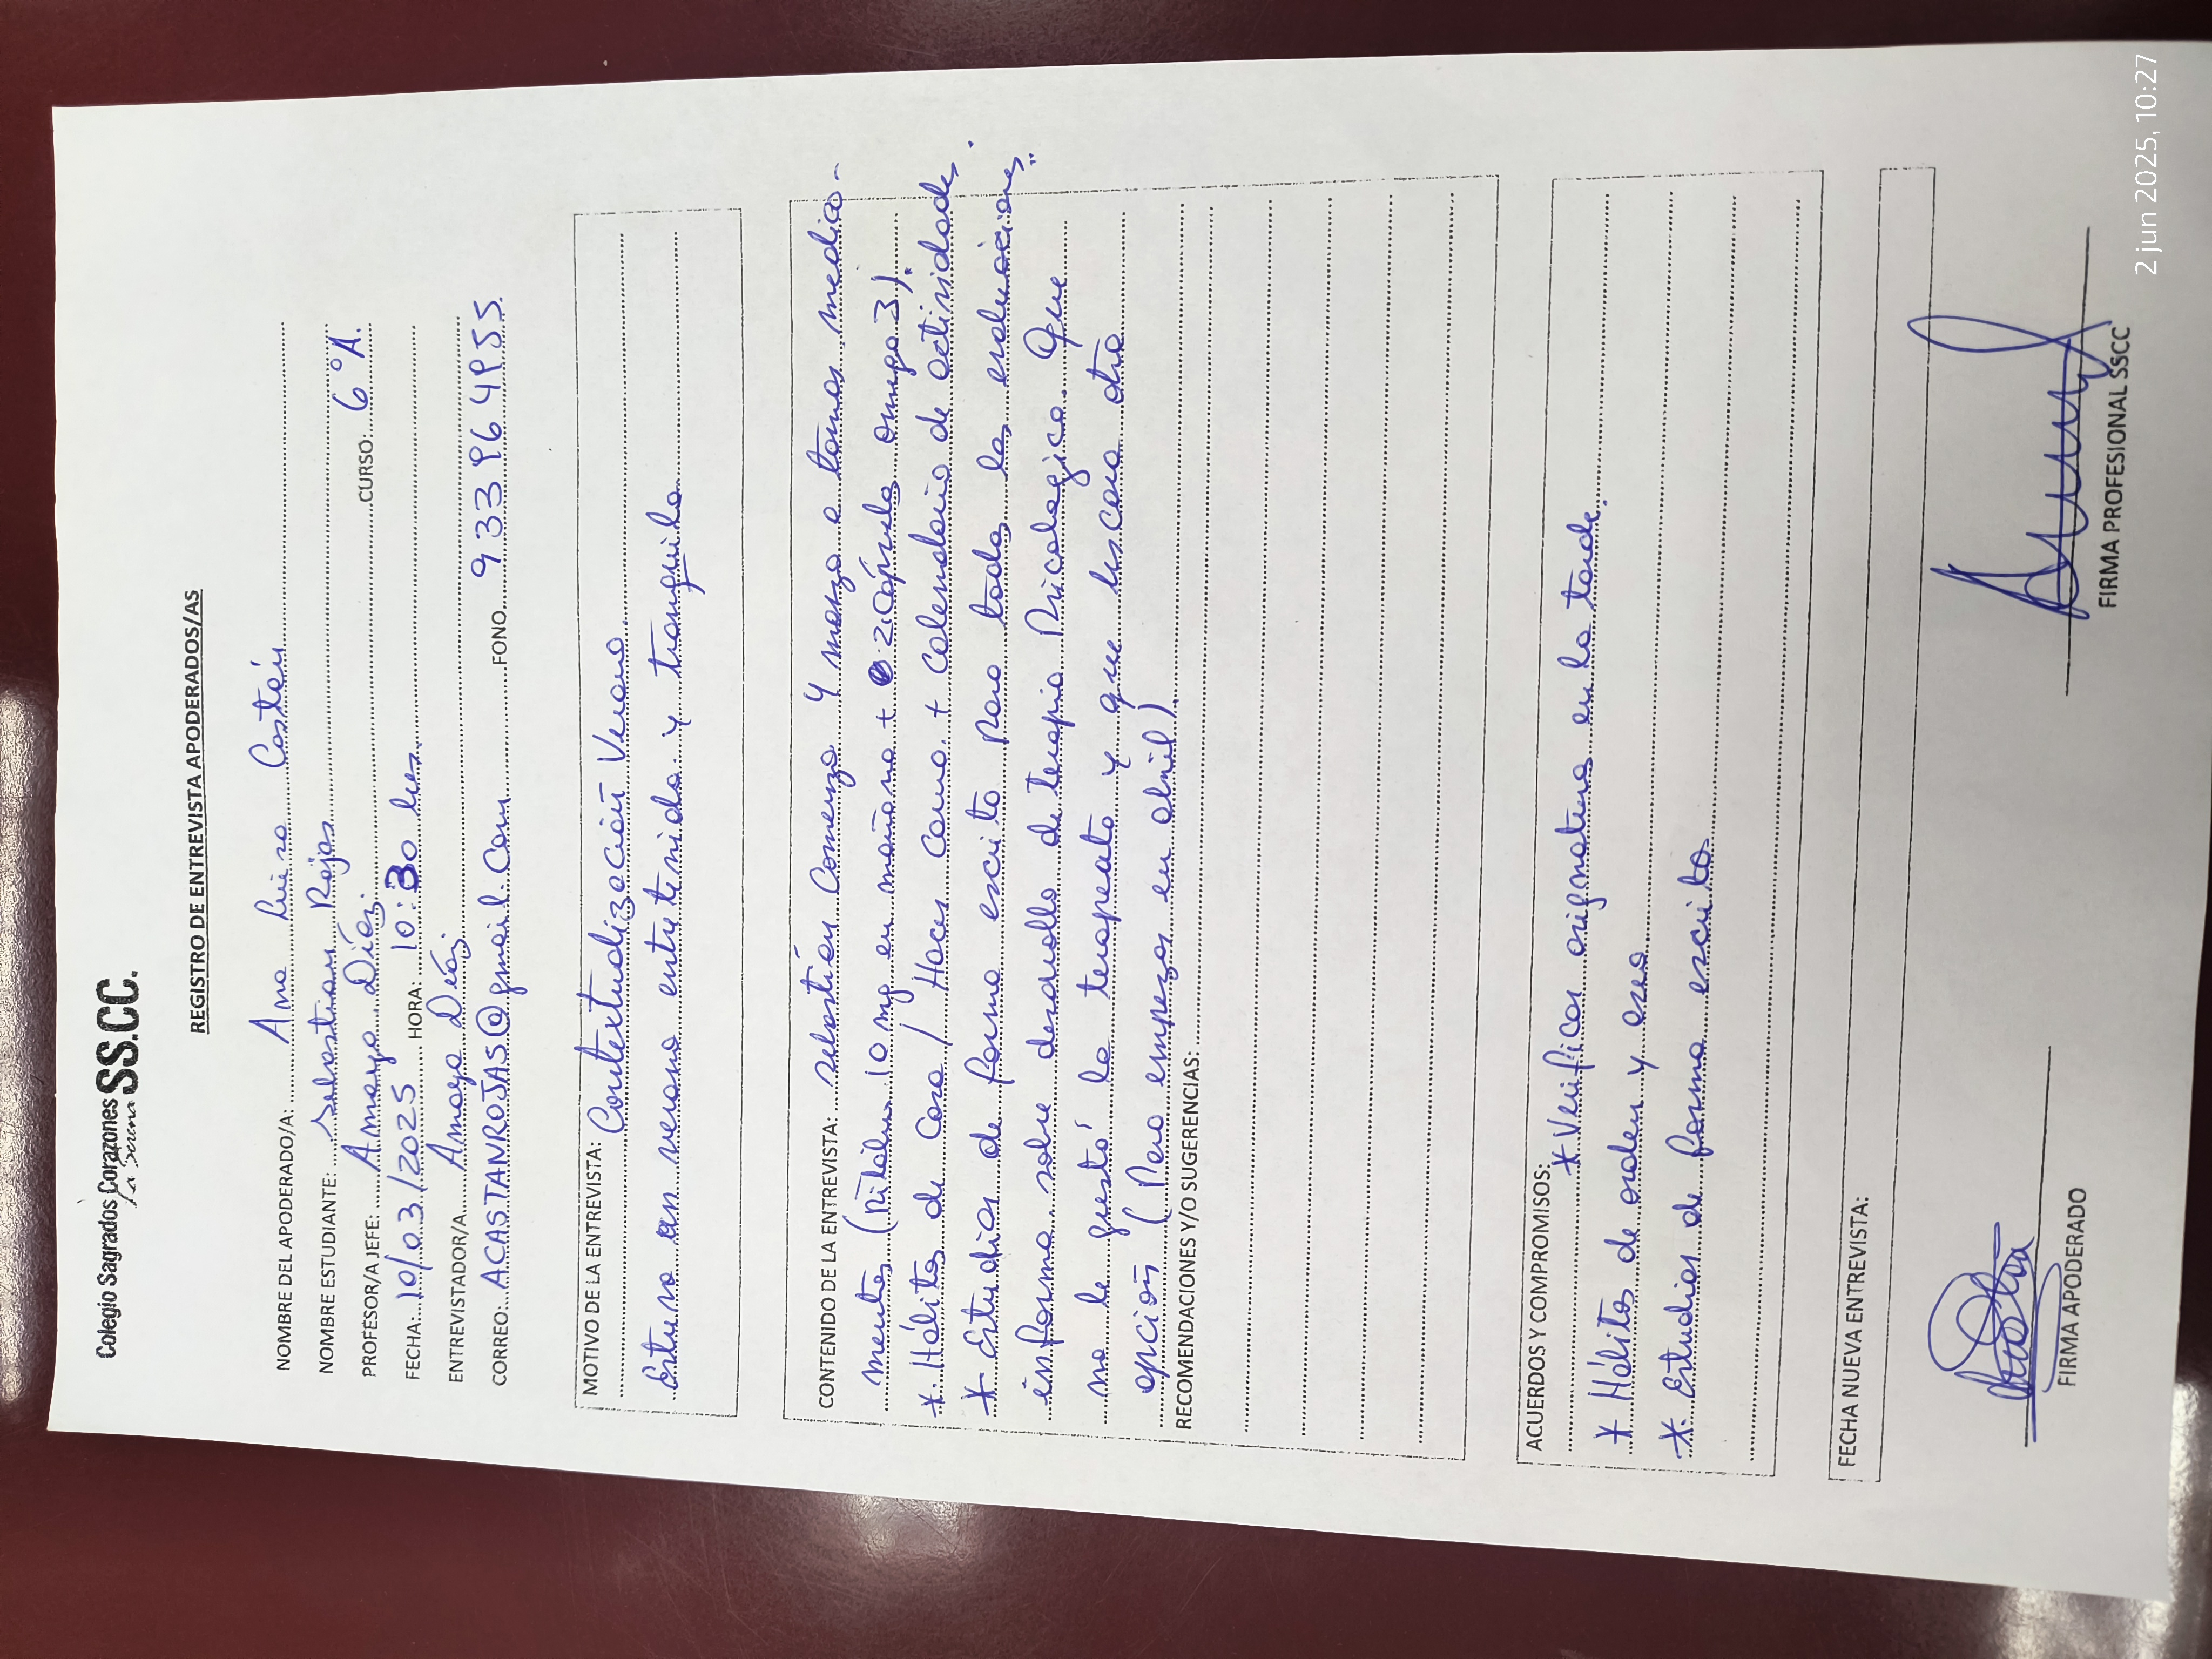 Colegio Sagrados Corazones SS.CC.
La Serena
REGISTRO DE ENTREVISTA APODERADOS/AS
NOMBRE DEL APODERADO/A: Ana Luisa Castán
NOMBRE ESTUDIANTE: Sebastian Rojas
PROFESOR/A JEFE: Amaya Díaz. CURSO: 6°A.
FECHA: 10/03/2025 HORA: 10:30 hrs.
ENTREVISTADOR/A: Amaya Díaz.
CORREO: ACASTANROJAS@gmail.com FONO 9 33 96 4955.
MOTIVO DE LA ENTREVISTA: Contextualización Verano
Estuvo un verano entretenido y tranquilo
CONTENIDO DE LA ENTREVISTA: sebastián Comenzó 4 marzo a tomar medica-
mentos (Ritalin 10 mg en mañana + 2 Cápsulas omega 3).
* Hábitos de Casa / Hacer Cama + Calendario de actividades.
* Estudiar de forma escrita Para todas las evaluaciones.
informa sobre desarrollo de terapia Psicologica. Que
no le gustó la terapeuta y que buscara otra
opción (Pero empezar en abril)
RECOMENDACIONES Y/O SUGERENCIAS:
ACUERDOS Y COMPROMISOS:
* Verificar asignaturas en la tarde.
* Hábitos de orden y aseo
* Estudiar de forma escrita
FECHA NUEVA ENTREVISTA:
FIRMA APODERADO
FIRMA PROFESIONAL SSCC
2 jun 2025, 10:27